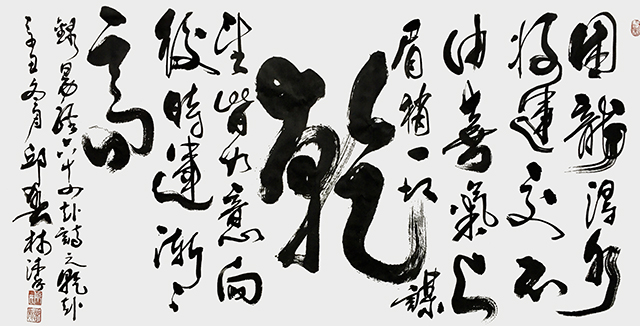 困龍得水
好運交不
由喜氣上
眉稍一切謀
乾
望皆如意向
後時運漸〻
高
錄易經六十四卦詩之乾卦
辛丑 月邱 林